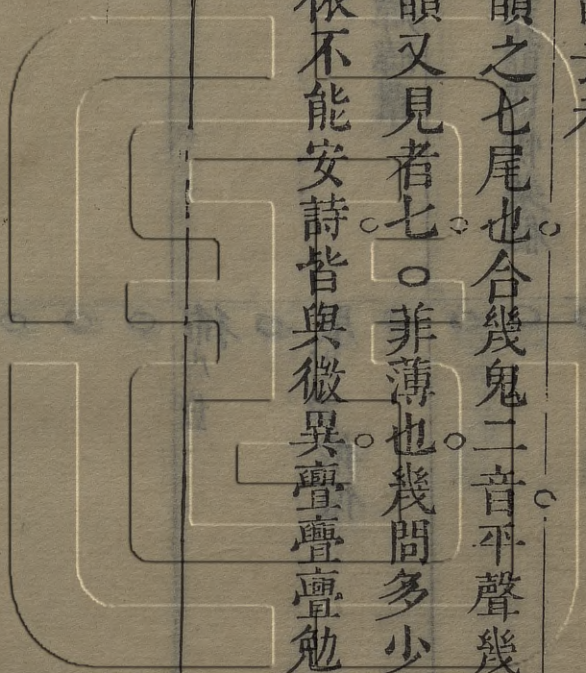 韻之七尾也合幾鬼二音平聲幾
韻又見者七○菲薄也幾問多少
依不能安詩皆與微異亹亹亹勉